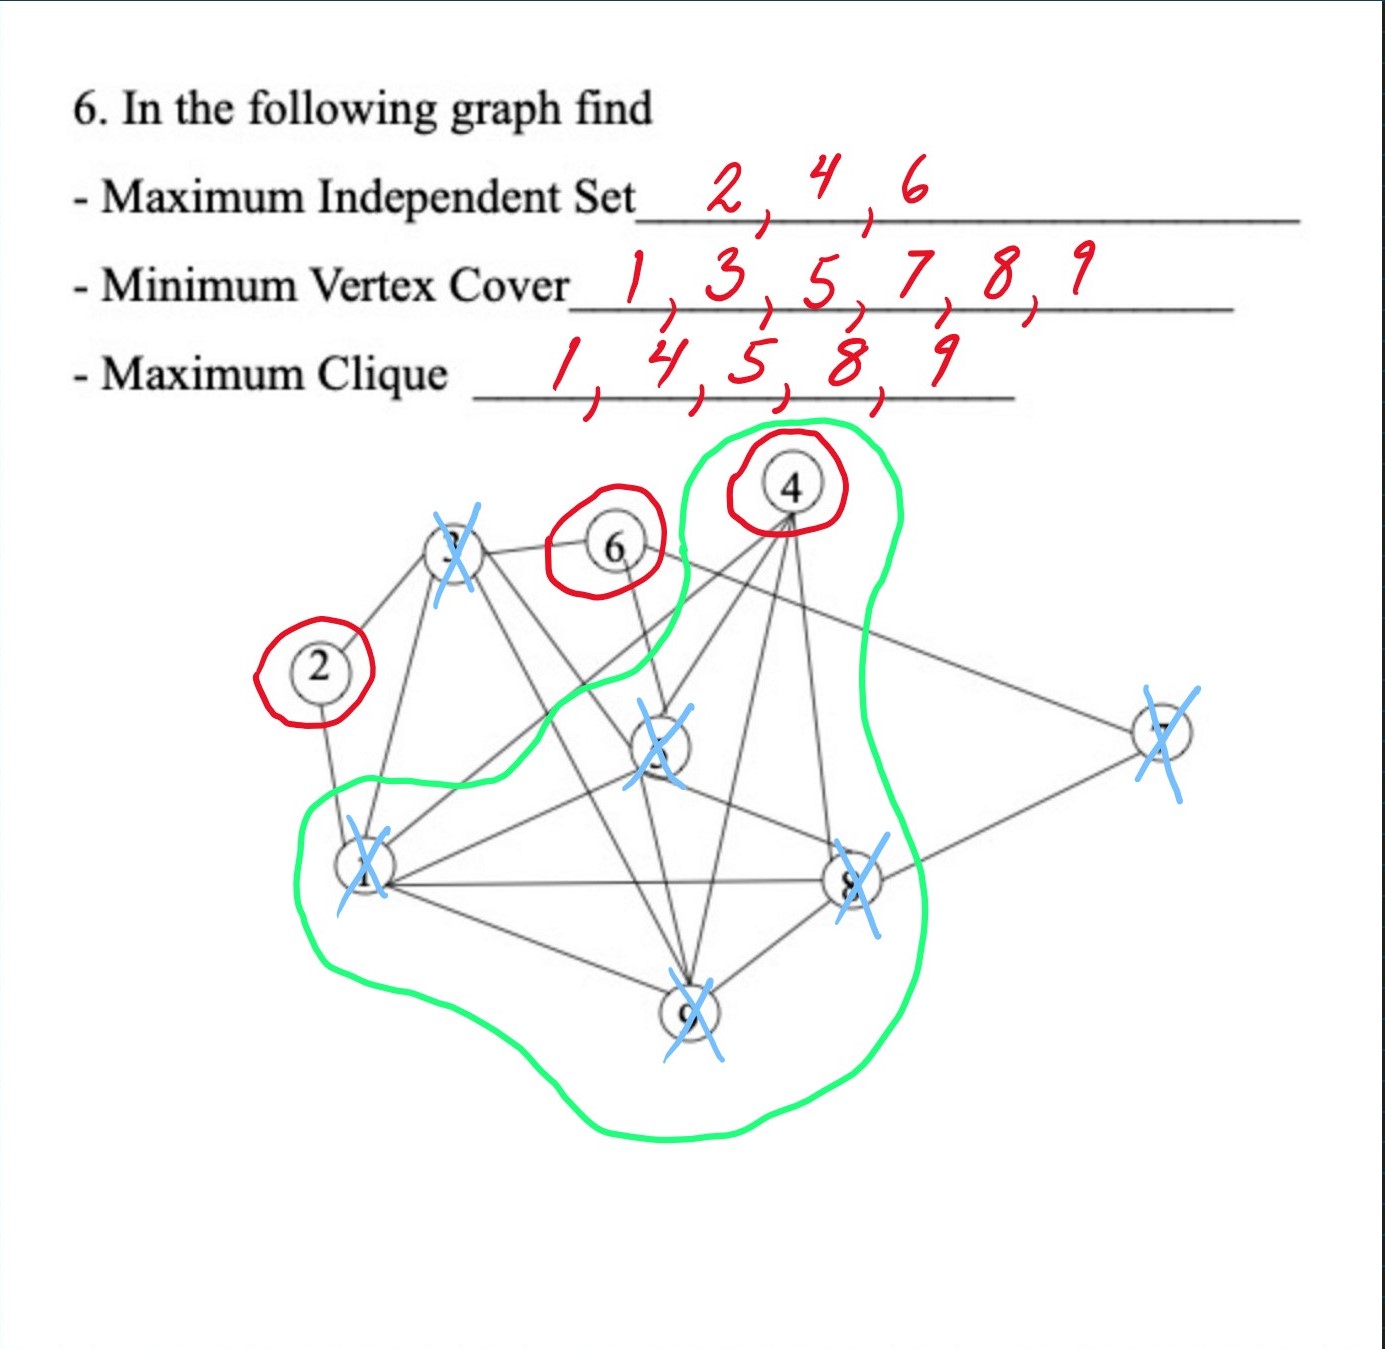 6. In the following graph find
- Maximum Independent Set 2, 4, 6
- Minimum Vertex Cover 1, 3, 5, 7, 8, 9
- Maximum Clique 1, 4, 5, 8, 9
4
3
6
2
5
7
1
8
9